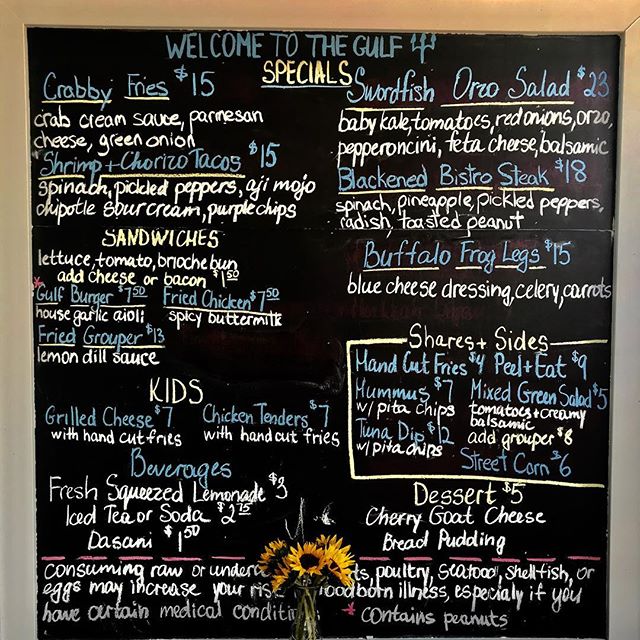 WELCOME TO THE GULF
SPECIALS
Crabby Fries $15
crab cream sauce, parmesan
cheese, green onion
Shrimp + Chorizo Tacos $15
spinach, pickled peppers, aji mojo
chipotle sour cream, purple chips
Swordfish Orzo Salad $23
baby kale, tomatoes, red onions, orzo,
pepperoncini, feta cheese, balsamic
Blackened Bistro Steak $18
spinach, pineapple, pickled peppers,
radish, toasted peanut
SANDWICHES
lettuce, tomato, brioche bun
add cheese or bacon $1.50
*Gulf Burger $7.50
house garlic aioli
Fried Chicken $7.50
spicy buttermilk
Fried Grouper $13
lemon dill sauce
Buffalo Frog Legs $15
blue cheese dressing, celery, carrots
Shares + Sides
Hand Cut Fries $4 Peel + Eat $9
Hummus $7
w/ pita chips
Tuna Dip $12
w/ pita chips
Mixed Green Salad $5
tomatoes + creamy
balsamic
add grouper $8
Street Corn $6
KIDS
Grilled Cheese $7
with hand cut fries
Chicken Tenders $7
with hand cut fries
Beverages
Fresh Squeezed Lemonade $3
Iced Tea or Soda $2.75
Dasani $1.50
Dessert $5
Cherry Goat Cheese
Bread Pudding
consuming raw or underc ts, poultry, seafood, shellfish, or
eggs may increase your ris oodborn illness, especialy if you
have certain medical conditi
* contains peanuts